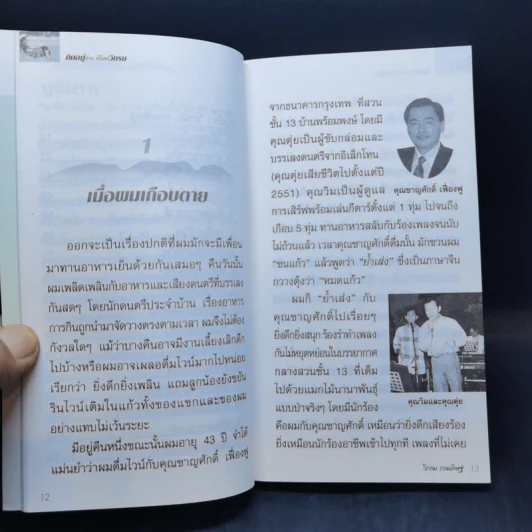 กินอยู่ง่าย สไตล์วิกรม
1
เมื่อผมเกือบตาย
ออกจะเป็นเรื่องปกติที่ผมมักจะมีเพื่อน
มาทานอาหารเย็นด้วยกันเสมอๆ คืนวันนั้น
ผมเพลิดเพลินกับอาหารและเสียงดนตรีที่บรรเลง
กันสดๆ โดยนักดนตรีประจำบ้าน เรื่องอาหาร
การกินถูกนำมาจัดวางตรงตามเวลา ผมจึงไม่ต้อง
กังวลใดๆ แม้ว่าบางคืนอาจมีงานเลี้ยงเลิกดึก
ไปบ้างหรือผมอาจเผลอดื่มไวน์มากไปหน่อย
เรียกว่า ยิ่งดึกยิ่งเพลิน แถมลูกน้องยังขยัน
รินไวน์เติมในแก้วทั้งของแขกและของผม
อย่างแทบไม่เว้นระยะ
มีอยู่คืนหนึ่งขณะนั้นผมอายุ 43 ปี จำได้
แม่นยำว่าผมดื่มไวน์กับคุณชาญศักดิ์ เฟื่องฟู
12
จากธนาคารกรุงเทพ ที่สวน
ชั้น 13 บ้านพร้อมพงษ์ โดยมี
คุณตุ่ยเป็นผู้ขับกล่อมและ
บรรเลงดนตรีจากอิเล็กโทน
(คุณตุ่ยเสียชีวิตไปตั้งแต่ปี
2551) คุณวิมเป็นผู้ดูแล
คุณชาญศักดิ์ เฟื่องฟู
การเสิร์ฟพร้อมเล่นกีตาร์ตั้งแต่ 1 ทุ่ม ไปจนถึง
เกือบ 5 ทุ่ม ทานอาหารสลับกับร้องเพลงจนนับ
ไม่ถ้วนแล้ว เวลาคุณชาญศักดิ์ดื่มนั้น มักชวนผม
"ชนแก้ว" แล้วพูดว่า "ย้ำเส่ง" ซึ่งเป็นภาษาจีน
กวางตุ้งว่า "หมดแก้ว"
ผมก็ "ย้ำเส่ง" กับ
คุณชาญศักดิ์ไปเรื่อยๆ
ยิ่งดึกยิ่งสนุก ร้องรำทำเพลง
กันไม่หยุดหย่อนในบรรยากาศ
กลางสวนชั้น 13 ที่เต็ม
ไปด้วยแมกไม้นานาพันธุ์
แบบป่าจริงๆ โดยมีนักร้อง
คุณวิมและคุณตุ่ย
คือผมกับคุณชาญศักดิ์ เหมือนว่ายิ่งดึกเสียงร้อง
ยิ่งเหมือนนักร้องอาชีพเข้าไปทุกที เพลงที่ไม่เคย
วิกรม กรมดิษฐ์ 13